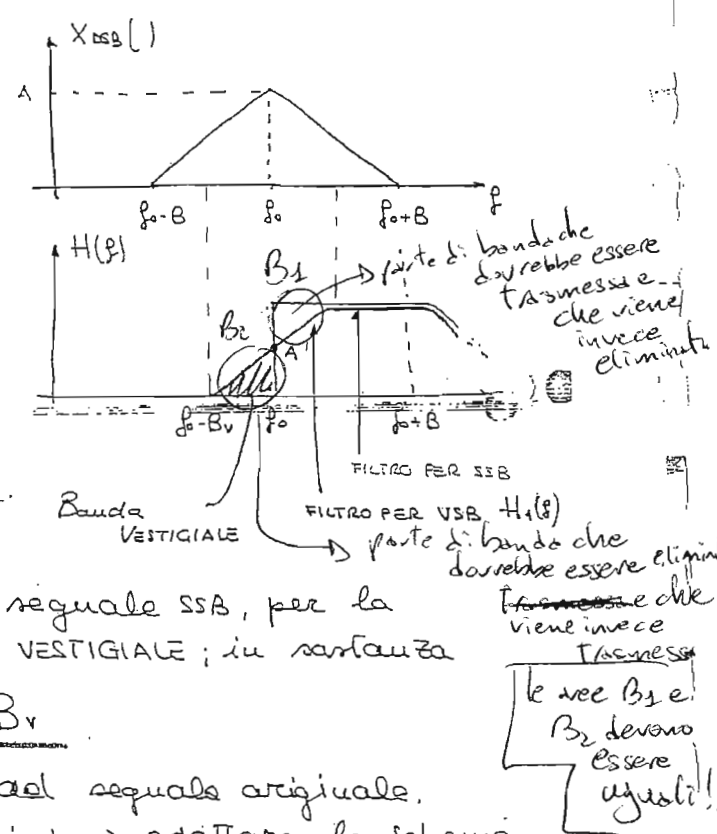 X DSB ( )
A
f0-B f0 f0+B f
H(f)
B1
parte di banda che
dovrebbe essere
trasmessa e
che viene
invece
eliminata
B2
A'
f0-Bv f0 f0+B
FILTRO PER SSB
Banda
VESTIGIALE
FILTRO PER VSB H1(f)
parte di banda che
dovrebbe essere elimin
e che
viene invece
trasmessa
seguale SSB, per la
VESTIGIALE; in sostanza
Bv
le aree B1 e
B2 devono
essere
uguali!
ad seguale originale,
adottare lo schema